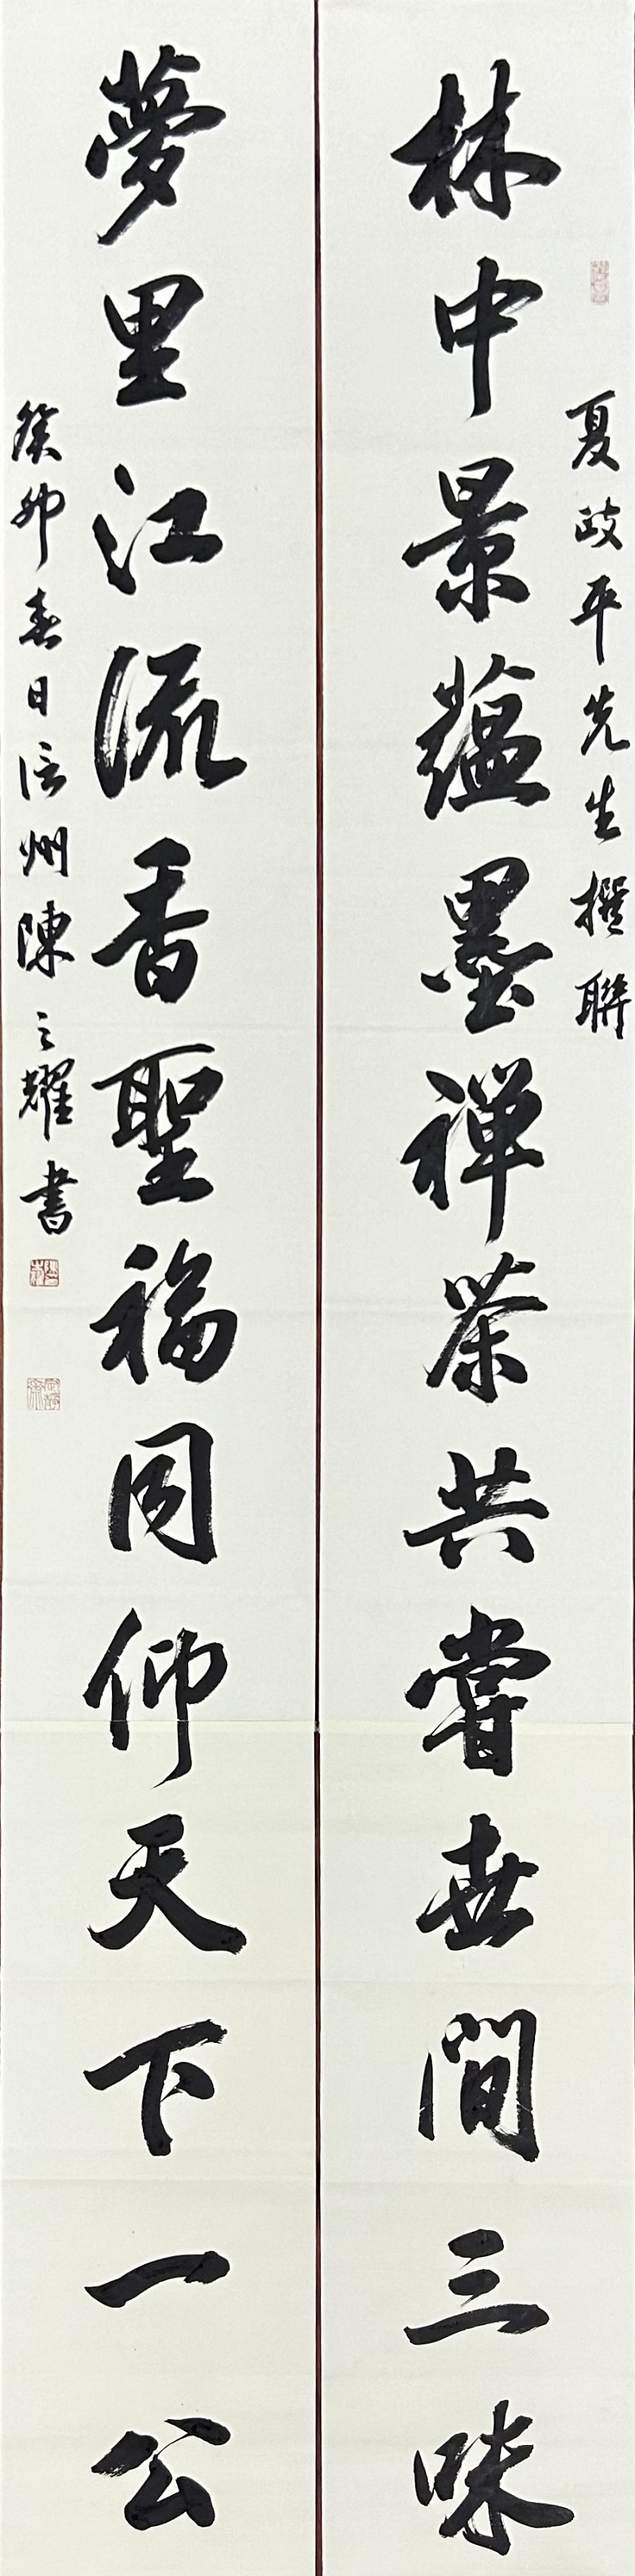 夏政平先生撰聯
林中景蘊墨禅茶共嘗世間三味
夢里江流香聖福同仰天下一公
癸卯春日信州陳之耀書